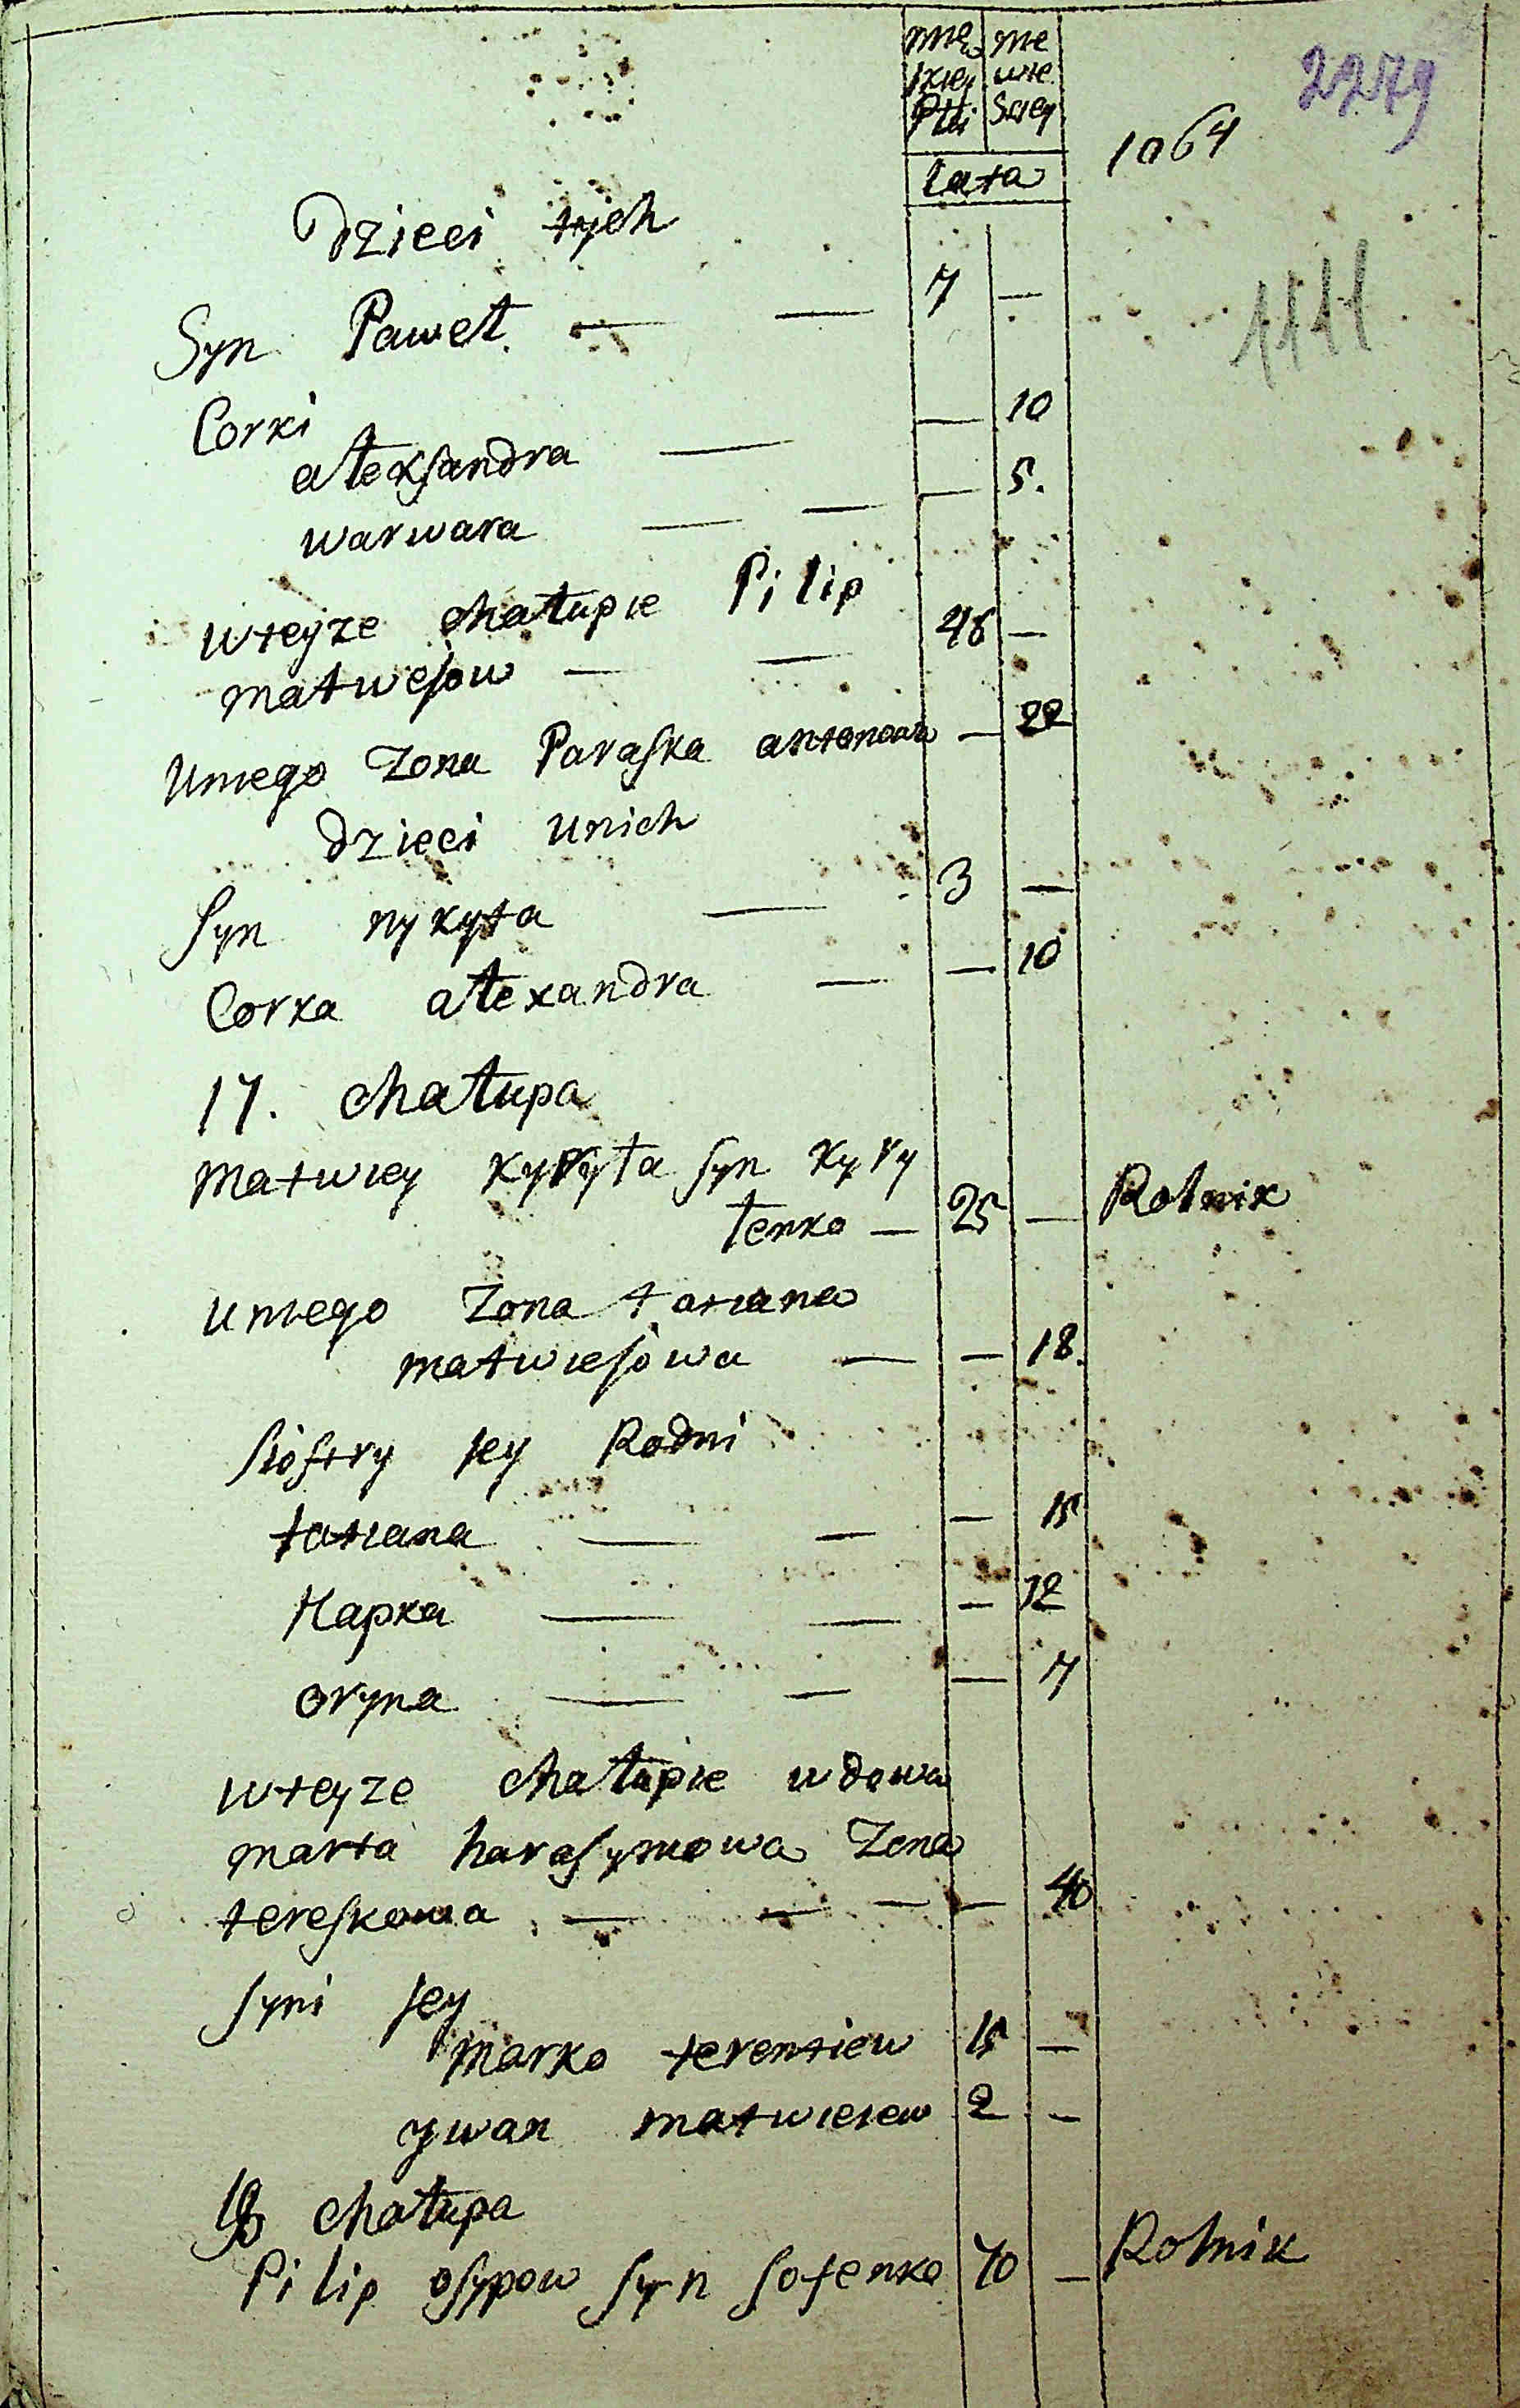 męz nie
skiey wie
Płci Sciey
lata
2279
1064
1111
Dzieci tych
Syn Paweł — — 7 —
Corki
ałeksandra — — 10
warwara — — — 5.
wteyze chałupie Pilip
matwesow — — 48 —
Uniego Zona Paraska antonowa — 22
dzieci Unich
Syn nykyta — 3 —
Corka ałexandra — — 10
17. chałupa
Matwiey kyryła syn kyry
łenko — 25 — Rolnik
Uniego Zona tatiana
matwiesowa — — 18.
siostry jey Rodni
tatiana — — — 15
Hapka — — — 12
oryna — — — 7
wteyze chałupie wdowa
marta harasymowa Zona
tereskowa — — — — 40
syni jey
Marko terentiew 15 —
ywan matwieiew 2 —
18 chałupa
Pilip osypow syn sotenko 70 — Rolnik